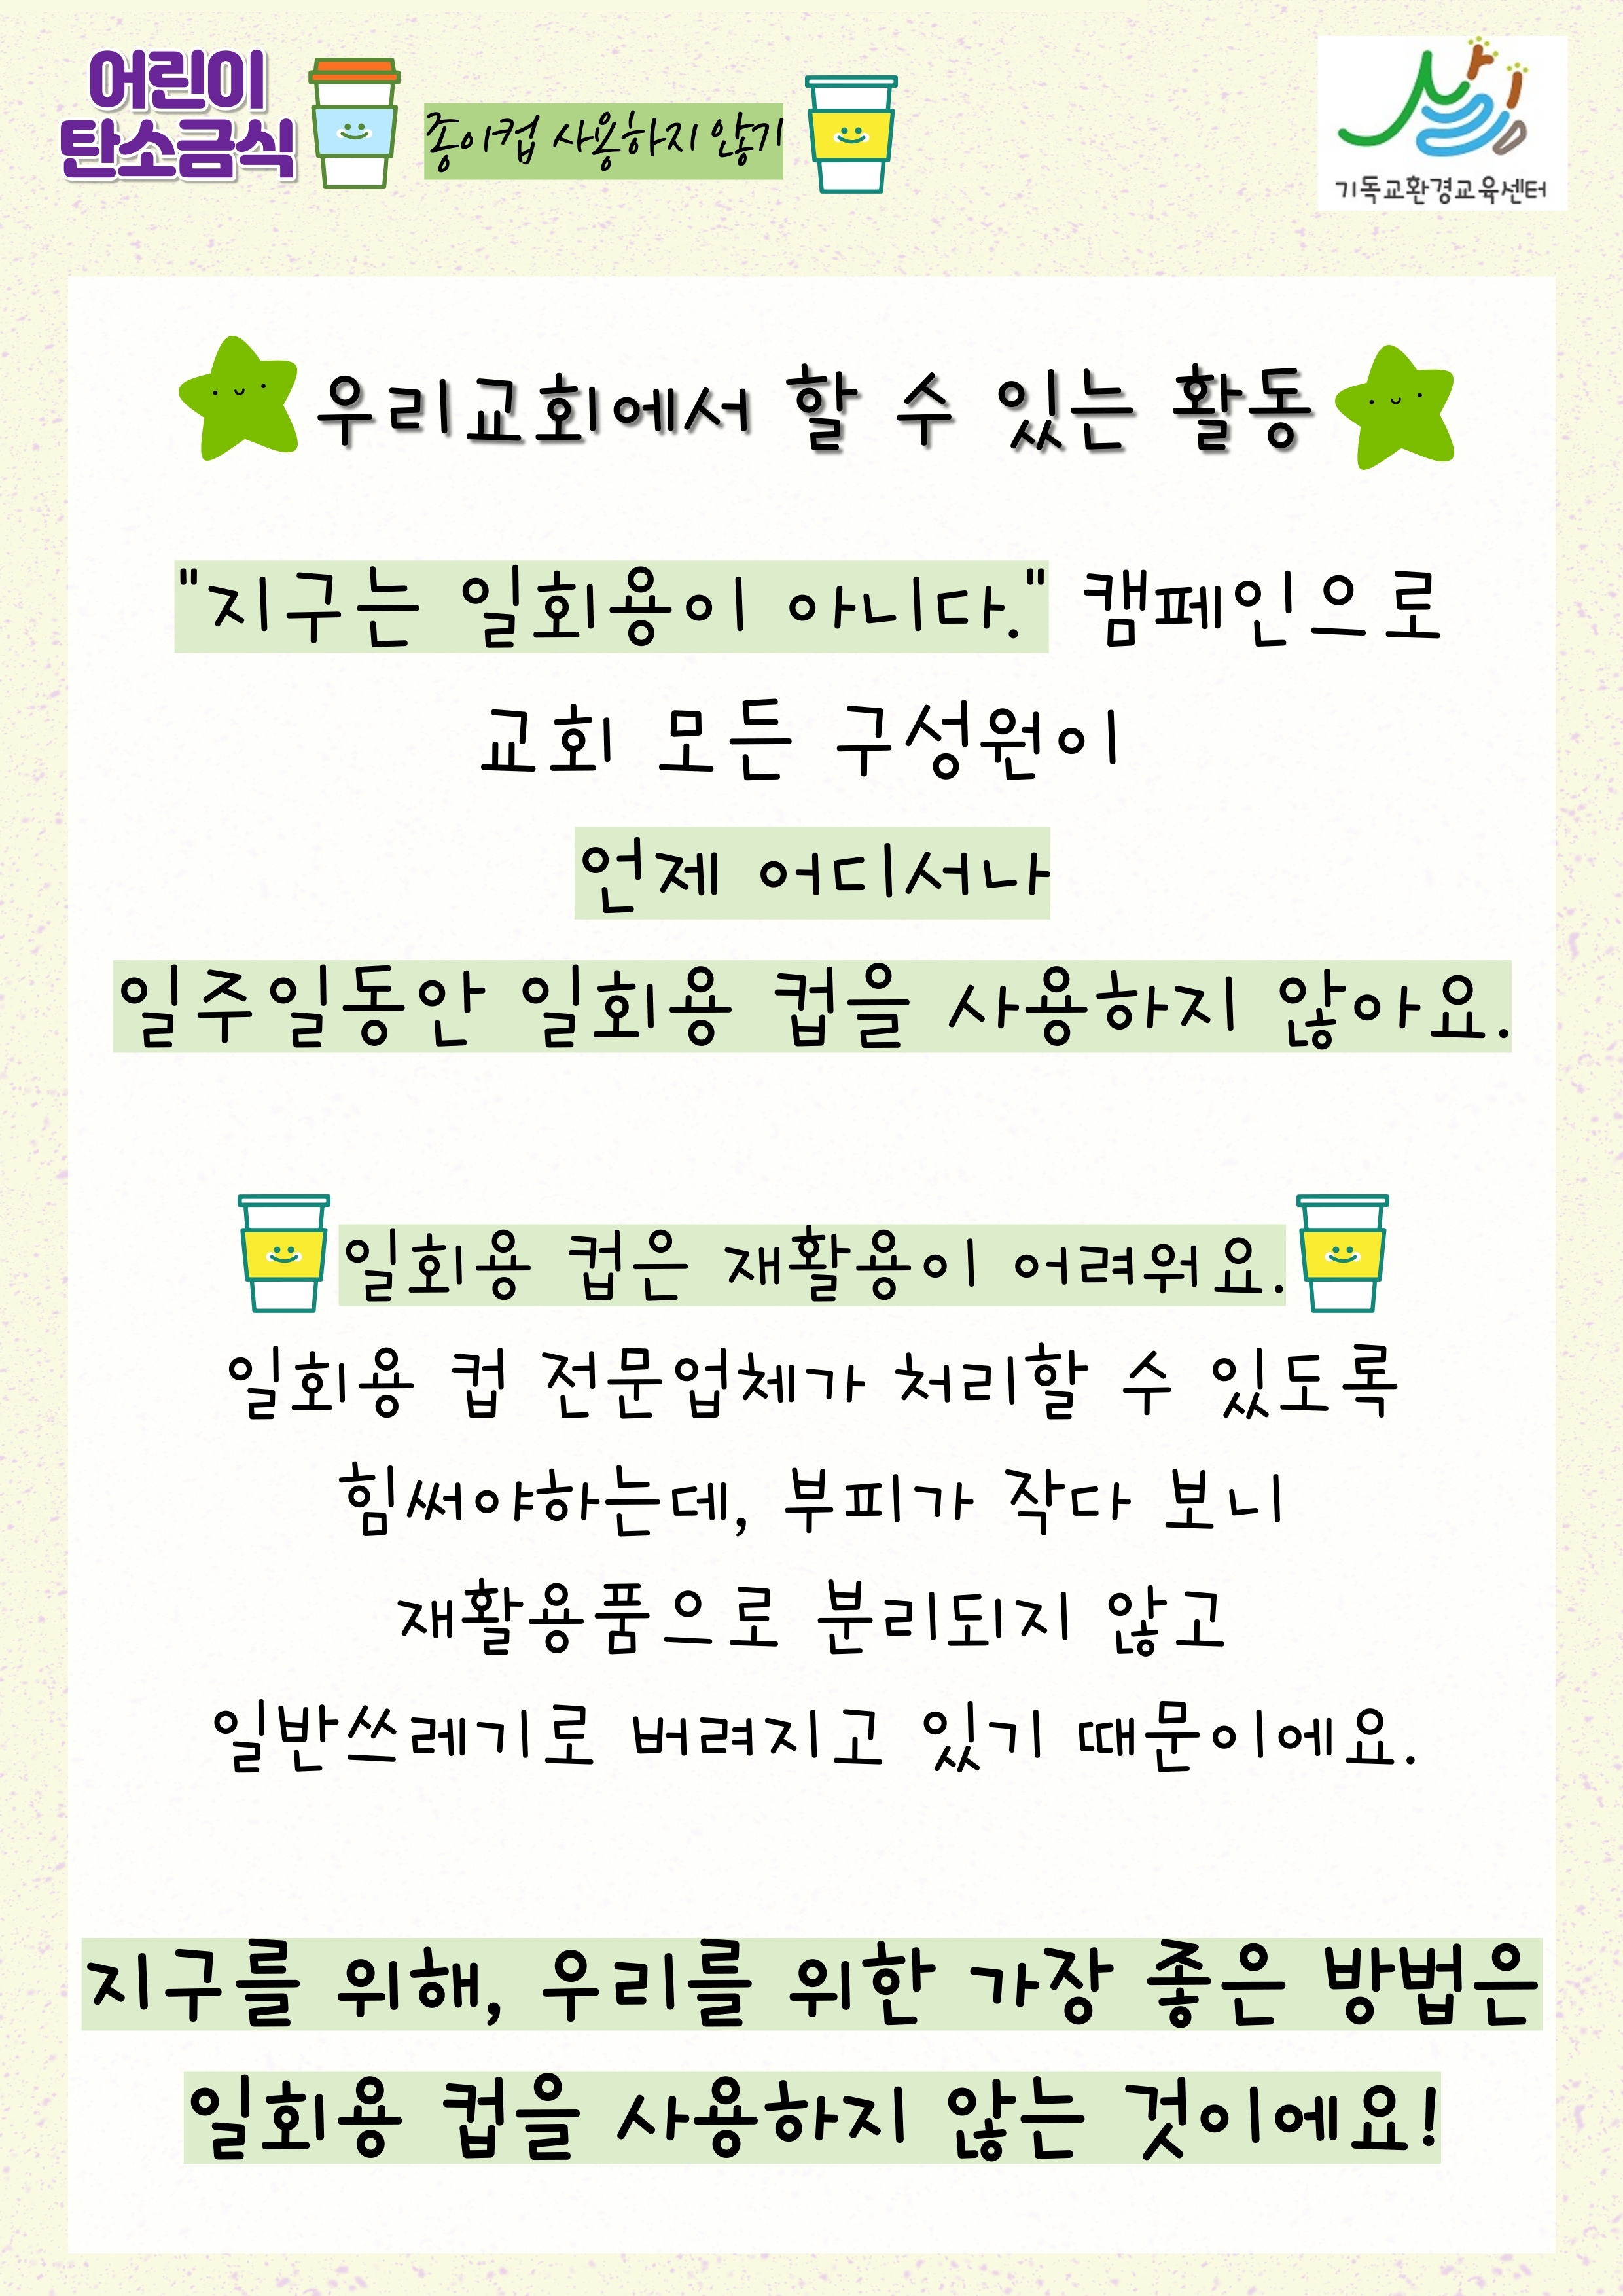 어린이
탄소금식
종이컵 사용하지 않기
살림
기독교환경교육센터
우리교회에서 할 수 있는 활동
"지구는 일회용이 아니다." 캠페인으로
교회 모든 구성원이
언제 어디서나
일주일동안 일회용 컵을 사용하지 않아요.
일회용 컵은 재활용이 어려워요.
일회용 컵 전문업체가 처리할 수 있도록
힘써야하는데, 부피가 작다 보니
재활용품으로 분리되지 않고
일반쓰레기로 버려지고 있기 때문이에요.
지구를 위해, 우리를 위한 가장 좋은 방법은
일회용 컵을 사용하지 않는 것이에요!